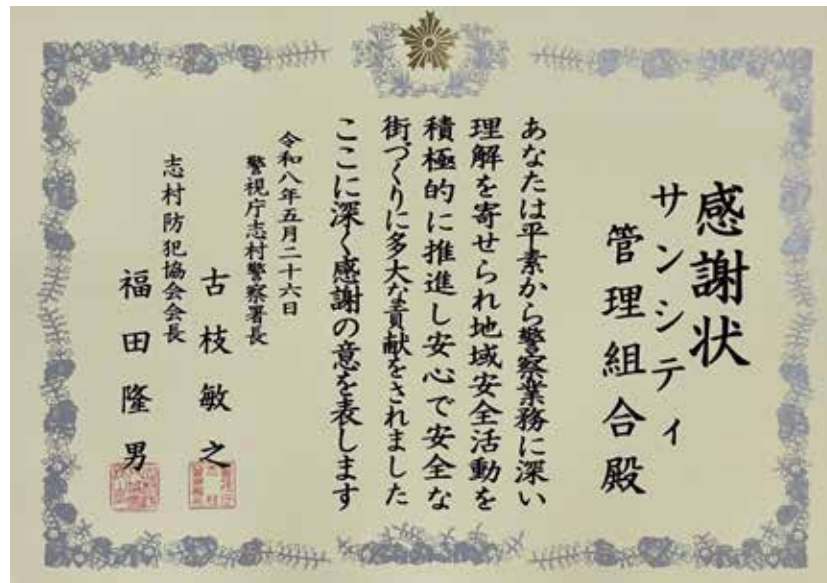 感謝状
サンシティ
管理組合殿
あなたは平素から警察業務に深い
理解を寄せられ地域安全活動を
積極的に推進し安心で安全な
街づくりに多大な貢献をされました
ここに深く感謝の意を表します
令和八年五月二十六日
警視庁志村警察署長
古枝敏之
志村防犯協会会長
福田隆男